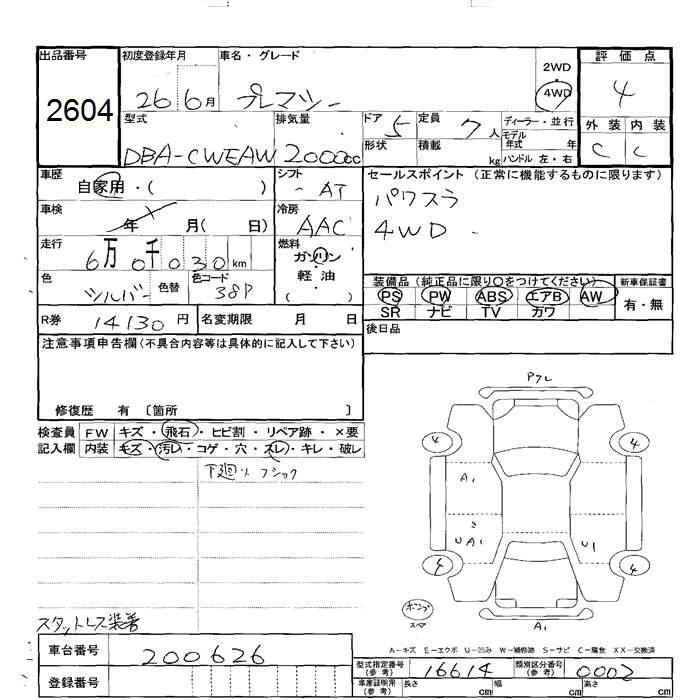 出品番号
2604
初度登録年月
26 6月
車名・グレード
プレマシー
2WD
4WD
評価点
4
外装 内装
C C
型式
DBA-CWEAW
排気量
2000cc
ドア
5
定員
7人
ディーラー・並行
モデル
年式 年
形状
積載
kg
ハンドル 左・右
車歴
自家用・( )
シフト
AT
セールスポイント (正常に機能するものに限ります)
パワスラ
4WD
車検
年 月( 日)
冷房
AAC
走行
6万0千030km
燃料
ガソリン・
軽油
( )
色
シルバー
色替
色コード
38P
装備品(純正品に限り○をつけてください)
新車保証書
PS PW ABS エアB AW
SR ナビ TV カワ
有・無
R券
14130円
名変期限 月 日
後日品
注意事項申告欄(不具合内容等は具体的に記入して下さい)
修復歴 有 〔箇所 〕
検査員
記入欄
FW キズ・飛石・ヒビ割・リペア跡・×要
内装 キズ・汚レ・コゲ・穴・スレ・キレ・破レ
下廻り フショク
P7L
4 4
A1
UA1
U1
4 4
スペア
A1
スタットレス装着
A-キズ E-エクボ U-凹み W-補修跡 S-サビ C-腐食 XX-交換済
車台番号
200626
登録番号
型式指定番号
(参考)
16614
類別区分番号
(参考)
0002
車庫証明用
(参考)
長さ cm
幅 cm
高さ cm